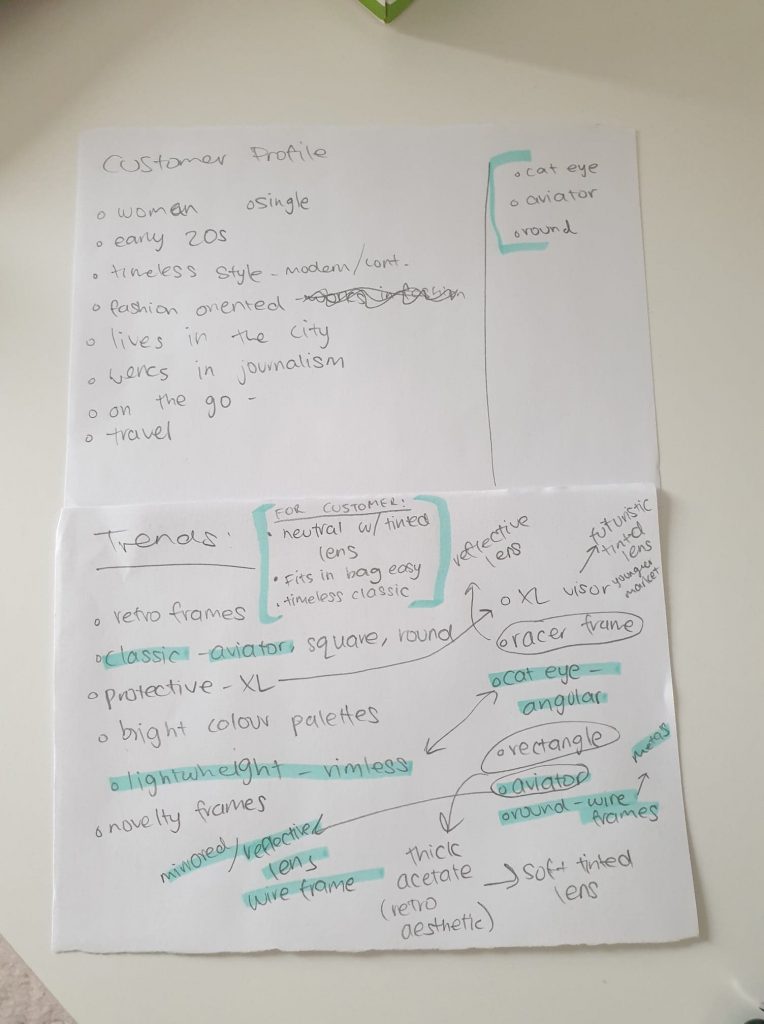 Customer Profile
o woman o single
o early 20s
o timeless style - modern/cont.
o fashion oriented -
o lives in the city
o wercs in journalism
o on the go -
o travel
o cat eye
o aviator
o round
Trends:
FOR CUSTOMER:
• neutral w/ tinted
lens
• Fits in bag easy
• timeless classic
o retro frames
o classic - aviator, square, round
o protective - XL
o bright colour palettes
o lightwheight - rimless
o novelty frames
reflective
lens
futuristic
tinted
lens
younger
market
o XL visor
o racer frame
o cat eye -
angular
o rectangle
o aviator
o round - wire
frames
metas
mirrored/reflective
lens
wire frame
thick
acetate
(retro
aesthetic)
soft tinted
lens